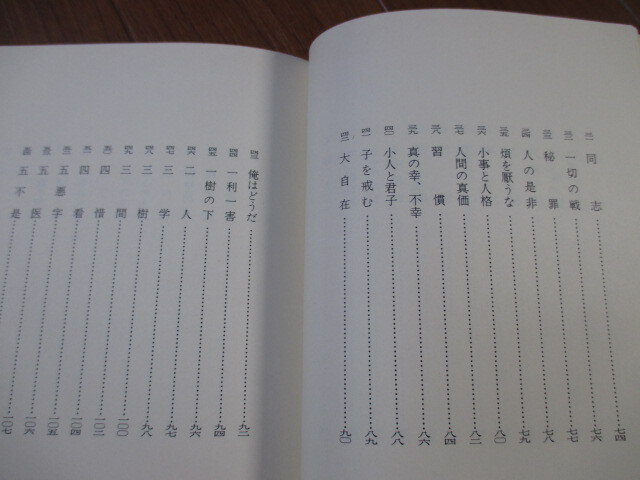 三一 同志 七四
三二 一切の戦 七六
三三 秘罪 七七
三四 人の是非 七八
三五 煩を厭うな 七九
三六 小事と人格 八〇
三七 人間の真価 八二
三八 習慣 八四
三九 真の幸、不幸 八六
四〇 小人と君子 八八
四一 子を戒む 八九
四二 大自在 九〇
四三 俺はどうだ 九二
四四 一利一害 九四
四五 一樹の下
四六 二人 九六
四七 三学 九七
四八 三樹 九八
四九 三間 一〇〇
五〇 四惜
五一 四看 一〇四
五二 五悪字 一〇五
五三 五医 一〇六
五四 五不是 一〇七